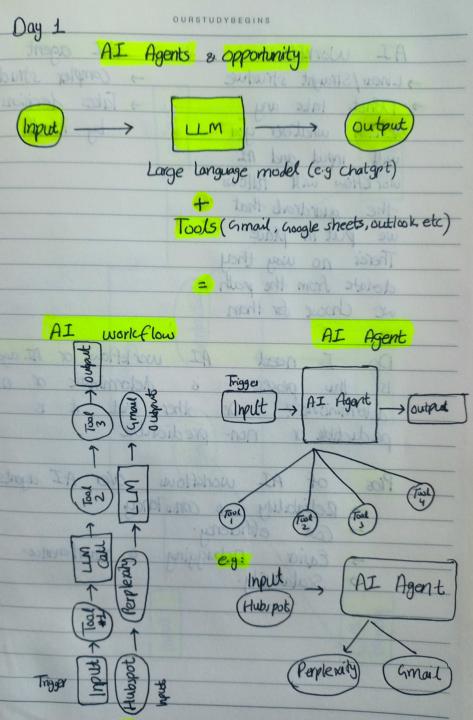 Day 1
OURSTUDYBEGINS
AI Agents & opportunity
Input
LLM
output
Large language model (e.g chatgpt)
+
Tools (Gmail, Google sheets, outlook, etc)
=
AI workflow
Output
Tool 3
Tool 2
LLM Call
Tool #1
Input
Trigger
Gmail
Outputs
LLM
Perplexity
Hubspot
Inputs
AI Agent
Trigger
Input
AI Agent
output
Tool 1
Tool 2
Tool 3
Tool 4
e.g:
Input
Hubspot
AI Agent
Perplexity
Gmail